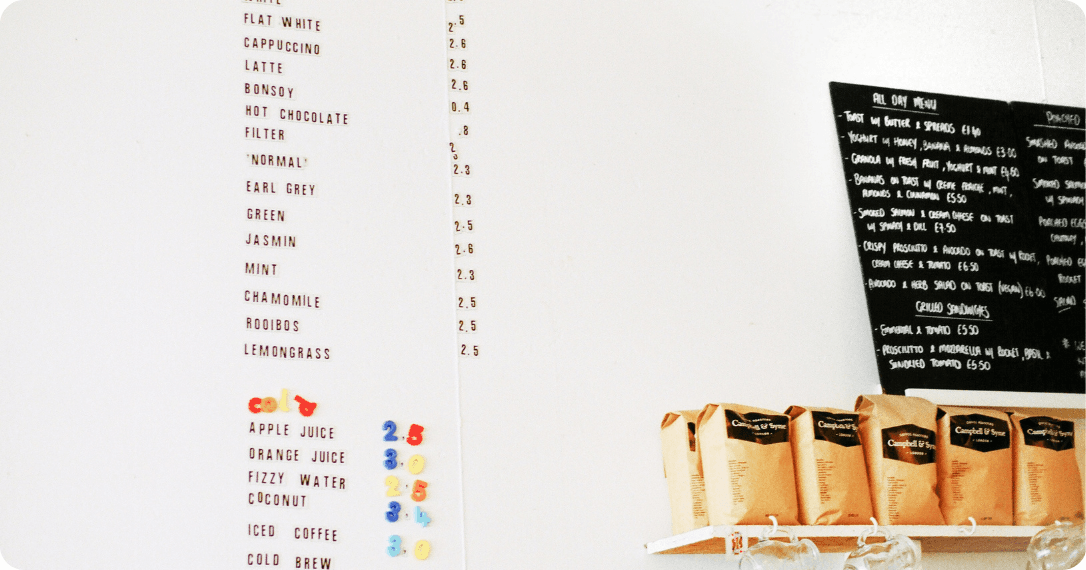 FLAT WHITE 2.5
CAPPUCCINO 2.6
LATTE 2.6
BONSOY 2.6
HOT CHOCOLATE 0.4
FILTER .8
2
'NORMAL' 2.3
EARL GREY 2.3
GREEN 2.5
JASMIN 2.6
MINT 2.3
CHAMOMILE 2.5
ROOIBOS 2.5
LEMONGRASS 2.5
cold
APPLE JUICE 2.5
ORANGE JUICE 3.0
FIZZY WATER 2.5
COCONUT 3.4
ICED COFFEE 3.0
COLD BREW
ALL DAY MENU
- TOAST W/ BUTTER & SPREADS
- YOGHURT W/ HONEY, BANANA & ALMONDS £3.00
- GRANOLA W/ FRESH FRUIT, YOGHURT & MINT £4.60
- BANANAS ON TOAST W/ CREME FRAICHE, MINT,
ALMONDS & CINNAMON £5.50
- SMOKED SALMON & CREAM CHEESE ON TOAST
W/ SPINACH & DILL £7.50
- CRISPY PROSCIUTTO & AVOCADO ON TOAST W/ ROCKET,
CREAM CHEESE & TOMATO £6.50
- AVOCADO & HERB SALAD ON TOAST (VEGAN) £6.00
GRILLED SANDWICHES
- EMMENTAL & TOMATO £5.50
- PROSCIUTTO & MOZZARELLA W/ ROCKET, BASIL &
SUNDRIED TOMATO £5.50
POACHED
ON TOAST
SMOKED
W/ SPINACH
POACHED EGGS
CHUTNEY
POACHED
ROCKET
SALAD
Campbell & Syme
LONDON
Campbell & Syme
LONDON
Campbell & Syme
LONDON
Campbell & Syme
LONDON
Campbell & Syme
LONDON